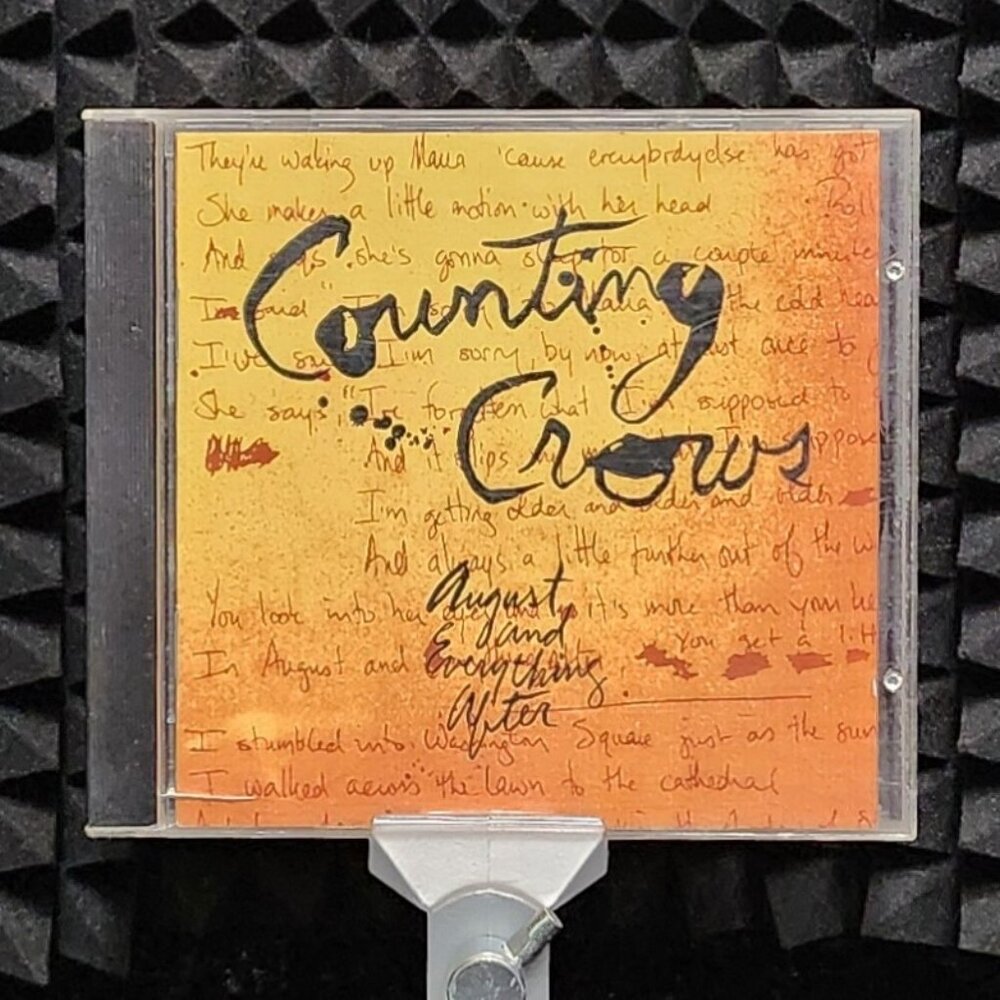 They're waking up Maria 'cause everybody else has got
She makes a little motion with her head Roll
And says she's gonna sleep for a couple minute
Counting
I said I'm sorry Maria the cold hea
I've sa I'm sorry by now, at least once to
Crows
She says, "I've forgotten what I'm supposed to
And it slips my mind what I'm suppose
I'm getting older and older and older
And always a little further out of the w
August
and
Everything
After
You look into her eyes and it's more than your he
you get a litt
In August and
I stumbled into Washington Square just as the sun
I walked across the lawn to the cathedral